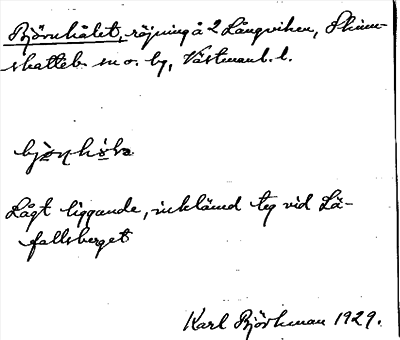 Björnhålet, röjning å 2 Långviken, Skinn-
skatteb. sn o. by, Västmanl. l.
Lågt liggande, inklämd teg vid Lå-
fallsberget
Karl Björkman 1929.